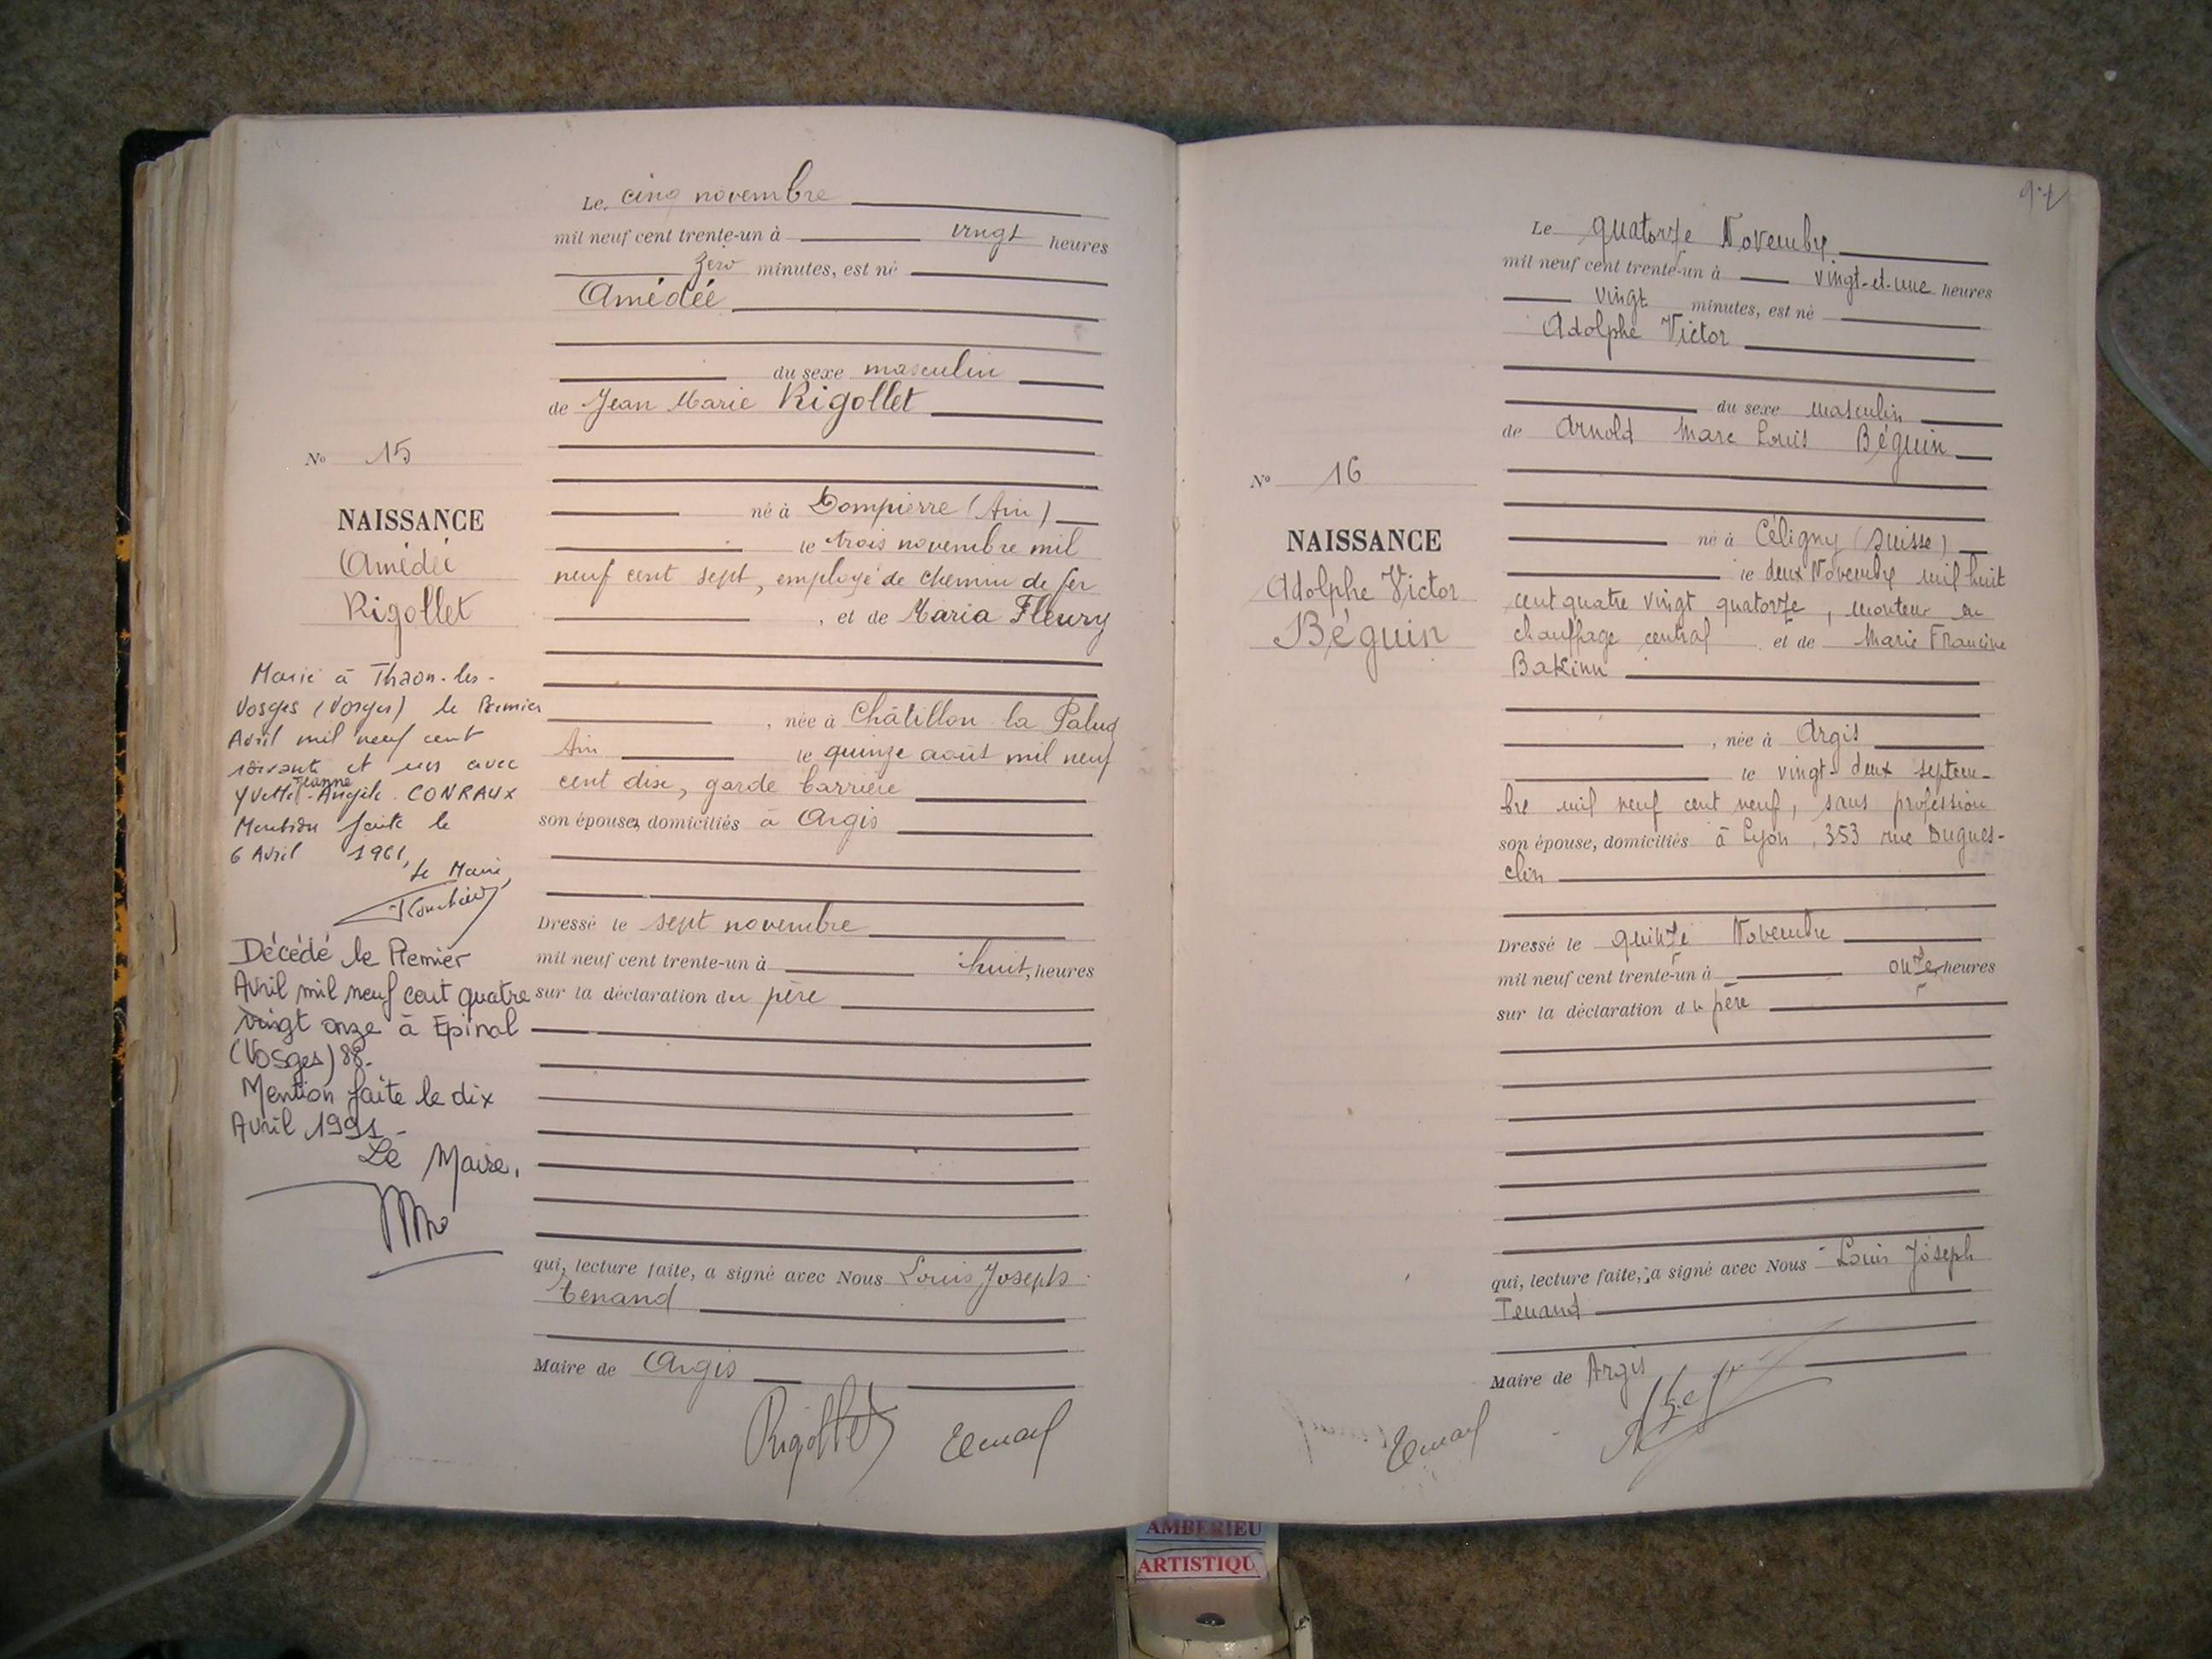 Le cinq novembre
mil neuf cent trente-un à vingt heures
zéro minutes, est né
Amédée
du sexe masculin
de Jean Marie Rigollet
né à Dompierre (Ain)
le trois novembre mil
neuf cent sept, employé de chemin de fer
, et de Maria Fleury
, née à Châtillon la Palud
Ain le quinze août mil neuf
cent dix, garde barrière
son épouse, domiciliés à Argis
Dressé le sept novembre
mil neuf cent trente-un à huit, heures
sur la déclaration du père
qui, lecture faite, a signé avec Nous Louis Joseph
Tenand
Maire de Argis
Rigollet Tenand
No 15
NAISSANCE
Amédée
Rigollet
Marié à Thaon-les-
Vosges (Vosges) le Premier
Avril mil neuf cent
soixante et un avec
Yvette Jeanne Angèle CONRAUX
Mention faite le
6 Avril 1961,
Le Maire,
Décédé le Premier
Avril mil neuf cent quatre
vingt onze à Epinal
(Vosges) 88-
Mention faite le dix
Avril 1991-
Le Maire,
Le quatorze Novembre
mil neuf cent trente-un à vingt-et-une heures
vingt minutes, est né
Adolphe Victor
du sexe masculin
de Arnold Marc Louis Béguin
né à Céligny (Suisse)
le deux Novembre mil huit
cent quatre vingt quatorze, monteur en
chauffage central et de Marie Francine
Bakinn
, née à Argis
le vingt-deux septem-
bre mil neuf cent neuf, sans profession
son épouse, domiciliés à Lyon, 353 rue Dugues-
clin
Dressé le quinze Novembre
mil neuf cent trente-un à onze heures
sur la déclaration du père
qui, lecture faite, a signé avec Nous Louis Joseph
Tenand
Maire de Argis
Tenand
No 16
NAISSANCE
Adolphe Victor
Béguin
AMBERIEU
ARTISTIQU